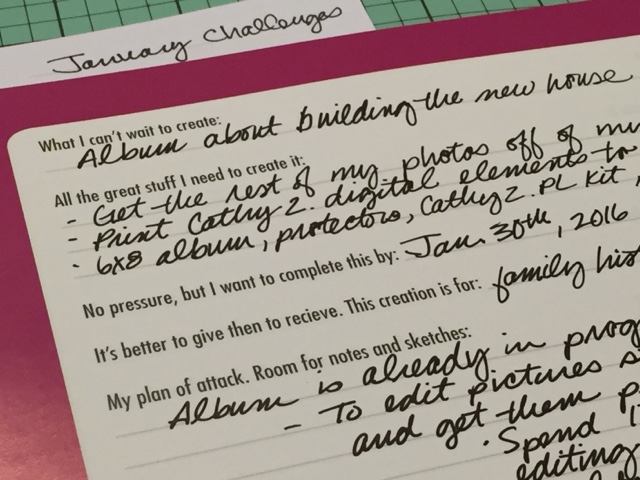 January Challenges
What I can't wait to create:
Album about building the new house
All the great stuff I need to create it:
- Get the rest of my photos off of my
- Print Cathy Z. digital elements to
- 6x8 album, protectors, Cathy Z. PL kit,
No pressure, but I want to complete this by: Jan. 30th, 2016
It's better to give then to recieve. This creation is for: family hist
My plan of attack. Room for notes and sketches:
Album is already in prog
- To edit pictures
and get them
. Spend
editing